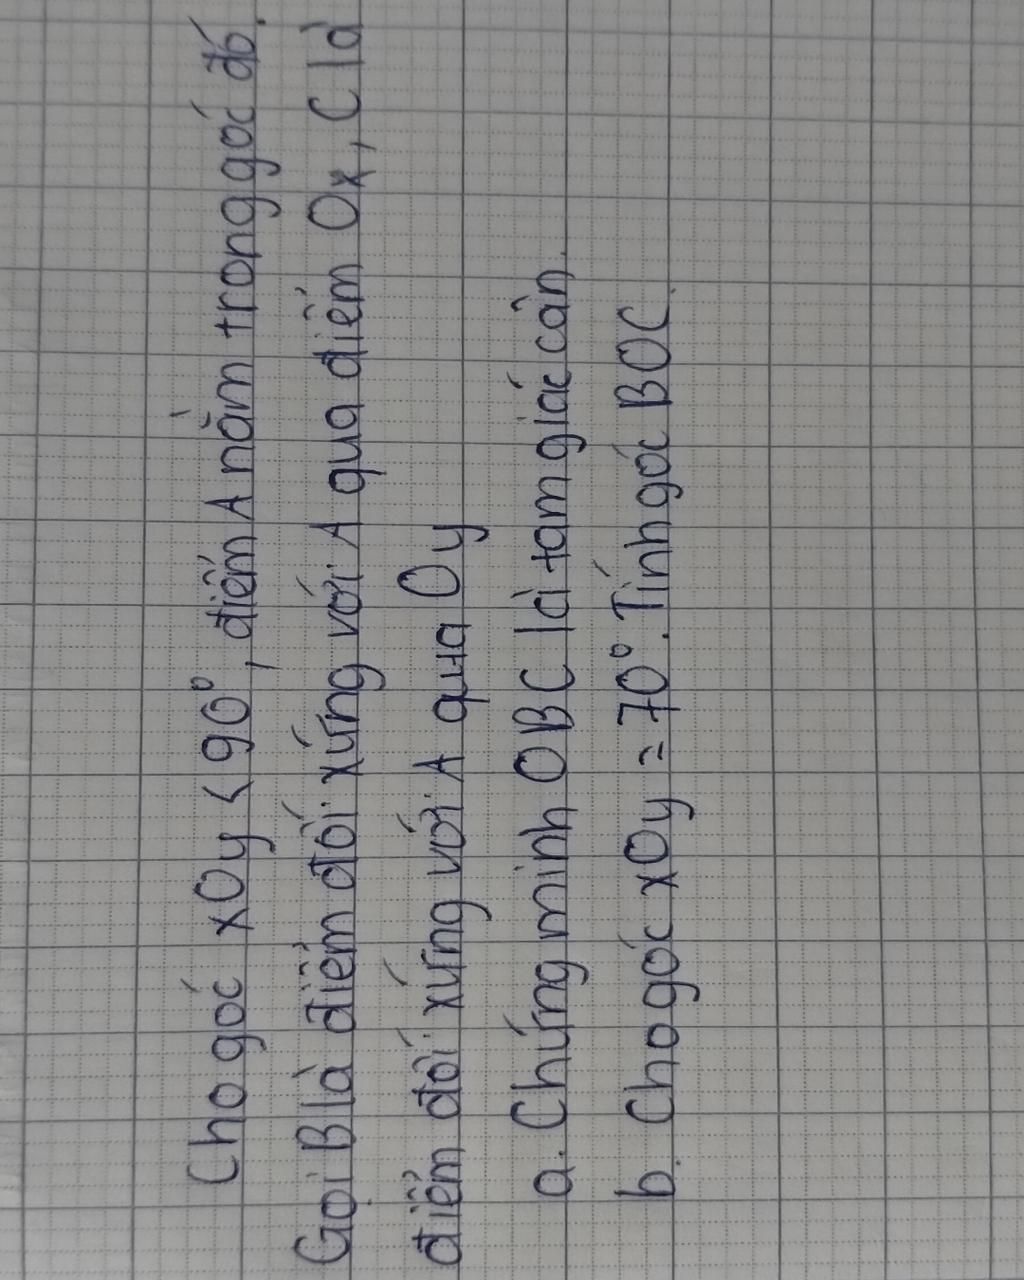 Cho góc xOy < 90°, điểm A nằm trong góc đó.
Gọi B là điểm đối xứng với A qua điểm Ox, C là
điểm đối xứng với A qua Oy
a. Chứng minh OBC là tam giác cân.
b. Cho góc xOy = 70°. Tính góc BOC.